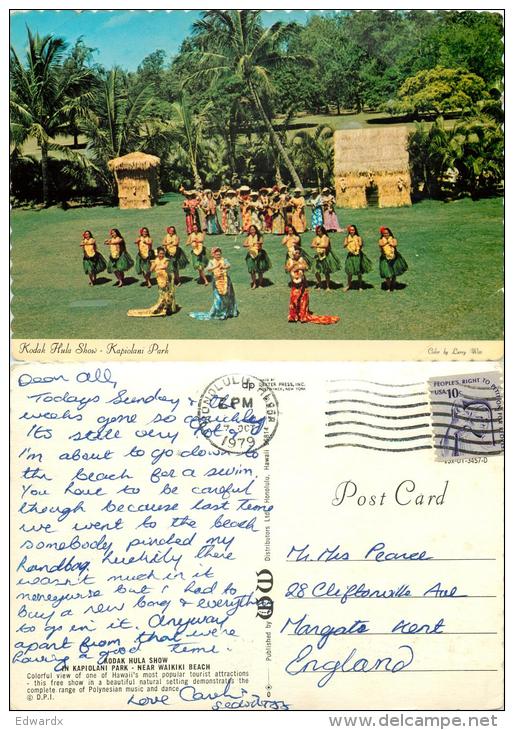 Kodak Hula Show - Kapiolani Park
Color by Larry Witt
Dear All,
Todays Sunday & the
weeks gone so quickly
Its still very hot &
I'm about to go down to
the beach for a swim.
You have to be careful
though because last time
we went to the beach
somebody pinched my
handbag. Luckily there
wasn't much in it
moneywise but I had to
buy a new bag & everything
to go in it. Anyway
apart from that we're
having a good time.
KODAK HULA SHOW
IN KAPIOLANI PARK - NEAR WAIKIKI BEACH
Colorful view of one of Hawaii's most popular tourist attractions
- this free show in a beautiful natural setting demonstrates the
complete range of Polynesian music and dance.
© D.P.I.
Love
dp
DEXTER PRESS, INC.
NEW YORK
HONOLULU
PM
OCT
1979
Published by
Distributors Ltd., Honolulu, Hawaii 96814
PEOPLE'S RIGHT TO PETITION FOR
USA 10c
-3457-D
Post Card
Mr. Mrs Pearce
28 Cliftonville Ave
Margate Kent
England
Edwardx
www.delcampe.net